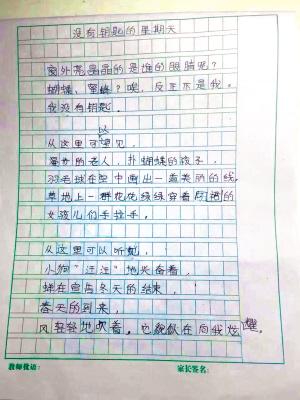 没有钥匙的星期天
窗外亮晶晶的是谁的眼睛呢?
蝴蝶、蜜蜂?唉,反正不是我。
我没有钥匙。
从这里可以望见,
的老人,扑蝴蝶的孩子,
羽毛球在空中画出一道美丽的线。
草地上一群花花绿绿穿着的
女孩儿们手拉手。
从这里可以听见,
小狗“汪汪”地兴奋着,
蝉在宣告冬天的结束,
春天的到来,
风轻轻地吹着,也貌似在向我炫耀。
教师批语:
家长签名: